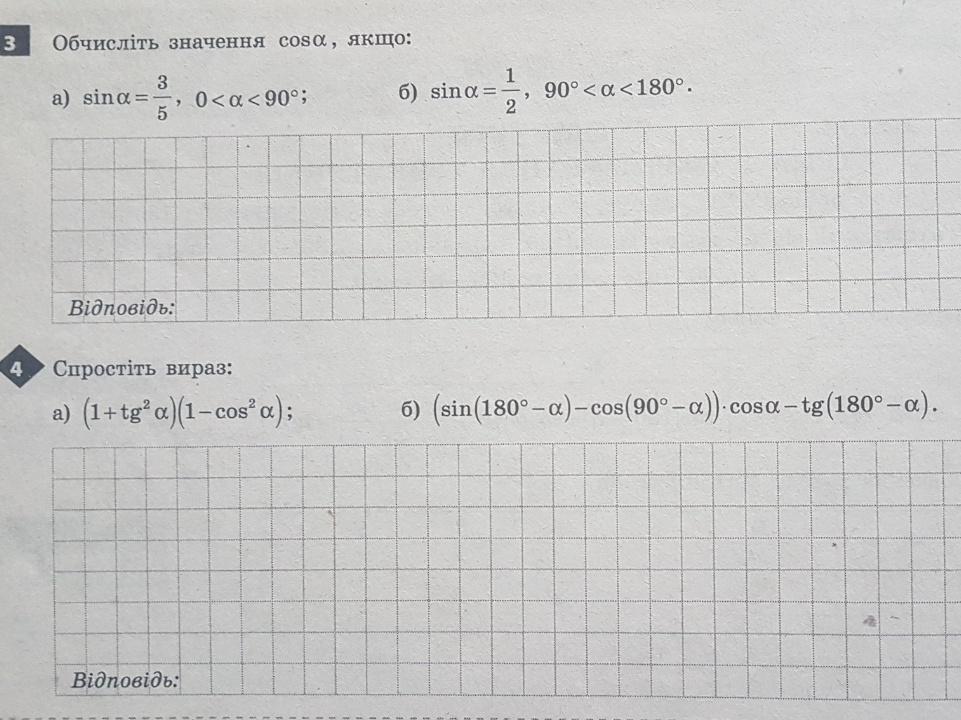 3 Обчисліть значення cosα, якщо:
а) sinα = 3/5, 0 < α < 90°; б) sinα = 1/2, 90° < α < 180°.
Відповідь:
4 Спростіть вираз:
а) (1 + tg² α)(1 − cos² α); б) (sin(180° − α) − cos(90° − α)) · cosα − tg(180° − α).
Відповідь: